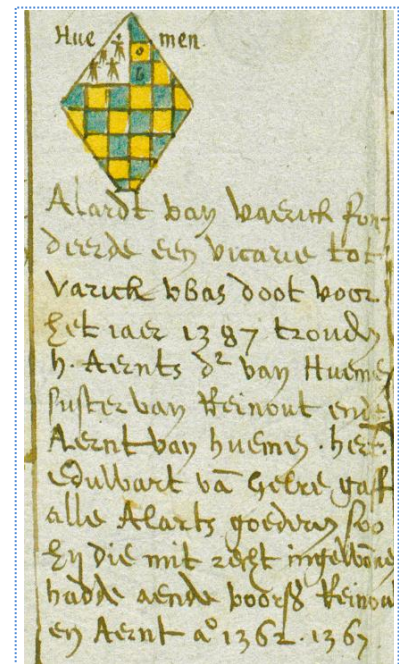 Huemen.
Alardt van Vaerick fon-
deerde een vicarie tot
Varick vvas doot voor.
het iaer 1387 troud
h. Aernts dr van Hueme
suster van Reinout ende
Aernt van huemen. hert.
Eduwart vā Gelre gaff
alle Alarts goederen soo
hy die mit recht ingewone
hadde aende voors Reinou
en Aernt ao 1362. 1367